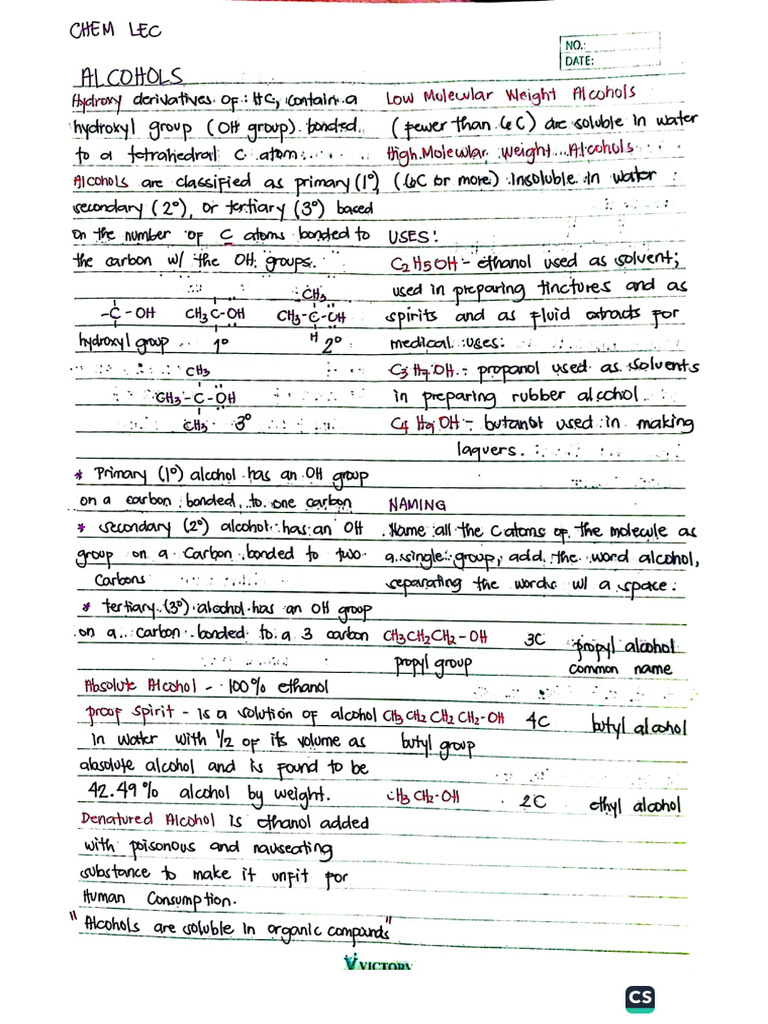 CHEM LEC
NO.:
DATE:
ALCOHOLS
Hydroxy derivatives of HC, contain a
hydroxyl group (OH group) bonded
to a tetrahedral C atom.
Alcohols are classified as primary (1°)
secondary (2°), or tertiary (3°) based
on the number of C atoms bonded to
the carbon w/ the OH groups.
CH3
-C-OH CH3 C-OH CH3-C-OH
H
hydroxyl group 1° 2°
CH3
CH3-C-OH
CH3 3°
* Primary (1°) alcohol has an OH group
on a carbon bonded to one carbon
* secondary (2°) alcohol has an OH
group on a Carbon bonded to two
Carbons
* tertiary (3°) alcohol has an OH group
on a carbon bonded to a 3 carbon
Absolute Alcohol - 100% ethanol
proof spirit - is a solution of alcohol
in water with 1/2 of its volume as
absolute alcohol and is found to be
42.49% alcohol by weight.
Denatured Alcohol is ethanol added
with poisonous and nauseating
substance to make it unfit for
Human Consumption.
"Alcohols are soluble in organic compounds"
Low Molecular Weight Alcohols
(fewer than 6C) are soluble in water
High Molecular Weight Alcohols
(6C or more) Insoluble in water
USES:
C2H5OH - ethanol used as solvent;
used in preparing tinctures and as
spirits and as fluid extracts for
medical uses.
C3H7OH - propanol used as solvents
in preparing rubber alcohol
C4H9OH - butanol used in making
laquers.
NAMING
Name all the C atoms of the molecule as
a single group, add the word alcohol,
separating the words w/ a space.
CH3CH2CH2-OH 3C propyl alcohol
propyl group common name
CH3CH2CH2CH2-OH 4C butyl alcohol
butyl group
CH3CH2-OH 2C ethyl alcohol
VICTORY
CS